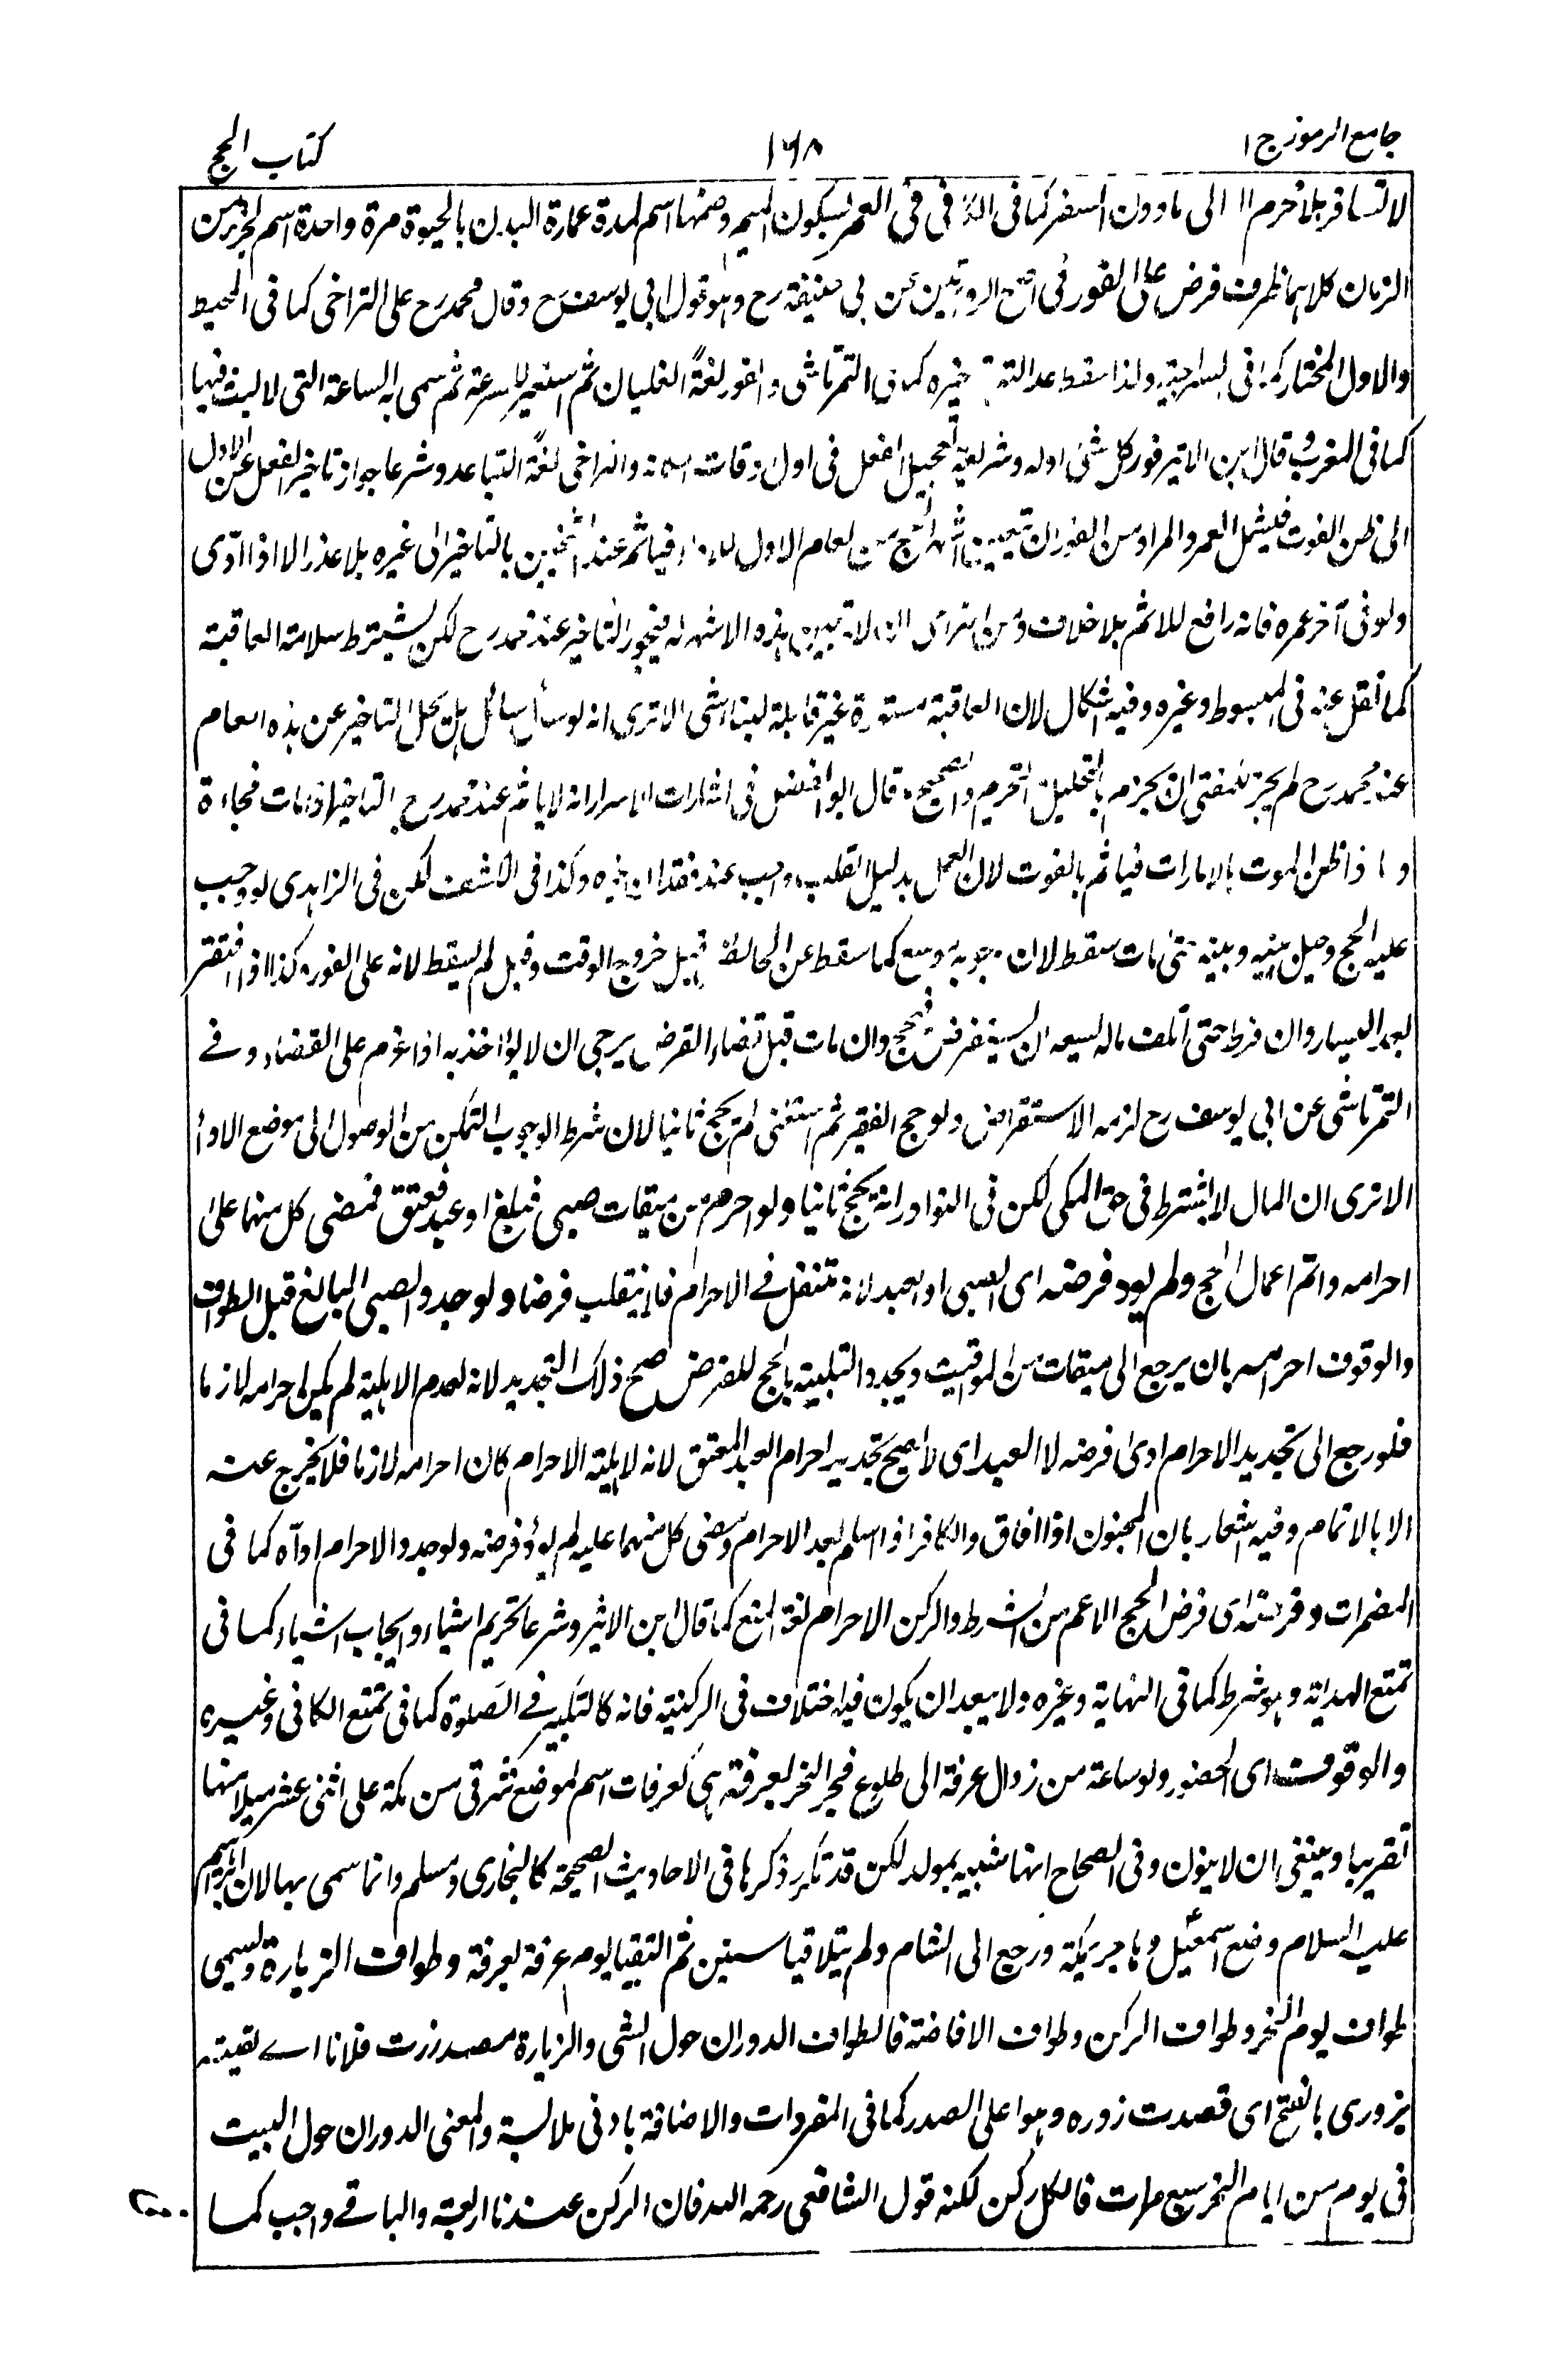 جامع الرموز ج ١
١٦٨
كتاب الحج
لا تسافر بلا محرم الى ما دون السفر كما فى فى العمر بسكون الميم وضمها اسم لمدة عمارة البدن بالحيوة مرة واحدة اسم لجزء من
الزمان كلاهما ظرف فرض على الفور فى اصح الروايتين عن ابى حنيفة رح وهو قول ابى يوسف رح وقال محمد رح على التراخى كما فى المحيط
والاول المختار كما فى السراجية ولذا سقط عدالته كما فى التمرتاشى والفور لغة الغليان ثم استعير للسرعة ثم سمى به الساعة التى لا لبث فيها
كما فى المغرب وقال ابن الاثير فور كل شئ اوله وشريعة تعجيل الفعل فى اول اوقات امكانه والتراخى لغة التباعد وشرعا جواز تاخير الفعل عن الاول
الى ظن الفوت فيشمل العمر والمراد من الفور ان تعيين اشهر الحج من العام الاول للاداء فياثم عند الشيخين بالتاخير الى غيره بلا عذر الا اذا ادّى
ولو فى آخر عمره فانه رافع للاثم بلا خلاف ومن التراخى ان لا تعيين هذه الاشهر له فيجوز التاخير عند محمد رح لكن يشترط سلامة العاقبة
كما نقل عنه فى المبسوط وغيره وفيه اشكال لان العاقبة مستورة غير قابلة لبناء شئ الا ترى انه لو سأل سائل هل يحل التاخير عن هذه العام
عند محمد رح لم يجز للمفتى ان يجزم بالتحليل او التحريم والصحيح ما قال ابو الفضل فى اشارات الاسرار انه لا ياثم عند محمد رح بالتاخير اذا مات فجاءة
واذا ظن الموت بالامارات فياثم بالفوت لان العمل بدليل القلب واجب عند فقدان غيره وكذا فى الكشف لكن فى الزاهدى لو وجب
عليه الحج وحيل بينه وبينه حتى مات سقط لان وجوبه موسع كما سقط عن الحائض قبيل خروج الوقت وقيل لم يسقط لانه على الفور كذا اذا افتقر
بعد اليسار وان فرط حتى اتلف ماله يسعه ان يستقرض فيحج وان مات قبل قضاء القرض يرجى ان لا يؤاخذ به اذا عزم على القضاء وفے
التمرتاشى عن ابى يوسف رح لزمه الاستقراض ولو حج الفقير ثم استغنى لم يحج ثانيا لان شرط الوجوب التمكن من الوصول الى موضع الادا
الا ترى ان المال لا يشترط فى حق المكى لكن فى النوادر انه يحج ثانيا ولو احرم من ميقات صبى فبلغ او عبد فعتق فمضى كل منهما على
احرامه واتم اعمال الحج ولم يود فرضه اى الصبى او العبد لانه متنفل فے الاحرام فلا ينقلب فرضا ولو جدد الصبى البالغ قبل الطواف
والوقوف احرامه بان يرجع الى ميقات من المواقيت ويجدد التلبية بالحج للفرض صح ذلك التجديد لانه لعدم الاهلية لم يكن احرامه لازما
فلو رجع الى تجديد الاحرام ادى فرضه لا العبد اى لا يصح تجديد احرام العبد المعتق لانه لاهلية الاحرام كان احرامه لازما فلا يخرج عنه
الا بالاتمام وفيه اشعار بان المجنون اذا افاق والكافر اذا اسلم بعد الاحرام ومضى كل منهما عليه لم يؤد فرضه ولو جدد الاحرام اداه كما فى
المضمرات وفرضه اى فرض الحج الاعم من الشرط والركن الاحرام لغة المنع كما قال ابن الاثير وشرعا تحريم اشياء وايجاب اشياء كما فى
تمتع الهداية وهو شرط كما فى النهاية وغيره ولا يبعد ان يكون فيه اختلاف فى الركنية فانه كالتكبير فے الصلوة كما فى تمتع الكافى وغيره
والوقوف اى الحضور ولو ساعة من زوال عرفة الى طلوع فجر النحر بعرفة هى كعرفات اسم لموضع شرقى من مكة على اثنى عشر ميلا منها
تقريبا وينبغى ان لا ينون وفى الصحاح انها شبيه بمولد لكن قد تكرر ذكرها فى الاحاديث الصحيحة كالبخارى ومسلم وانما سمى بها لان ابراهيم
عليه السلام وضع اسمعيل وهاجر بمكة ورجع الى الشام ولم يتلاقيا سنين ثم التقيا يوم عرفة بعرفة وطواف الزيارة ويسمى
طواف يوم النحر وطواف الركن وطواف الافاضة فالطواف الدوران حول الشئ والزيارة مصدر زرت فلانا اے لقيته
بزورى بالفتح اى قصدت زوره وهو اعلى الصدر كما فى المفردات والاضافة بادنى ملابسة والمعنى الدوران حول البيت
فى يوم من ايام النحر سبع مرات فالكل ركن لكنه قول الشافعى رحمه الله فان الركن عندنا اربعة والباقے واجب كما